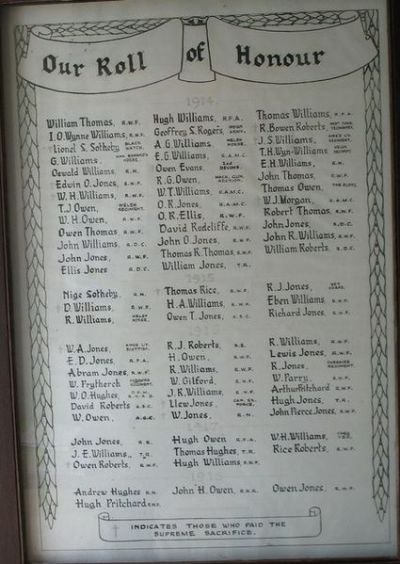 Our Roll of Honour
1914
William Thomas, R.W.F. Hugh Williams, R.F.A. Thomas Williams, R.F.A.
I.O.Wynne Williams, R.W.F. Geoffrey S. Rogers, INDIAN ARMY. R. Bowen Roberts
Lionel S. Sotheby, BLACK WATCH. A.G. Williams, WELSH HORSE. J.S. Williams,
G. Williams, E.G. Williams, R.A.M.C. T.H. Wyn-Williams
Oswald Williams, R.N. Owen Evans, E.H. Williams, R.N.
Edwin O. Jones, R.W.F. R.G. Owen, John Thomas, R.W.F.
W.H. Williams, R.W.F. W.T. Williams, R.A.M.C. Thomas Owen,
T.J. Owen, WELSH REGIMENT. O.R. Jones, R.A.M.C. W.J. Morgan, R.A.M.C.
W.H. Owen, R.W.F. O.R. Ellis, R.W.F. Robert Thomas, R.W.F.
Owen Thomas, R.W.F. David Radcliffe, R.W.F. John Jones, R.D.C.
John Williams, R.D.C. John O. Jones, R.W.F. John R. Williams, R.W.F.
John Jones, R.W.F. Thomas R. Thomas, R.W.F. William Roberts, R.D.C.
Ellis Jones R.D.C. William Jones, T.R.
1915
Nige Sotheby, R.N. Thomas Rice, R.W.F. R.J. Jones,
D. Williams, R.W.F. H.A. Williams, R.W.F. Eben Williams, R.W.F.
R. Williams, WELSH HORSE. Owen T. Jones, Richard Jones, R.W.F.
W.A. Jones, R.J. Roberts, R.E. R. Williams, R.W.F.
E.D. Jones, R.F.A. H. Owen, R.W.F. Lewis Jones, R.W.F.
Abram Jones, R.W.F. R. Williams, R.W.F. R. Jones, CHESHIRE REGIMENT.
W. Frytherch W. Gilford, R.W.F. W. Parry, R.W.F.
W.O. Hughes, J.R. Williams, R.W.F. Arthur Pritchard R.W.F.
David Roberts A.S.C. Llew Jones, Hugh Jones, T.R.
W. Owen, A.S.C. W. Jones, R.N. John Pierce Jones, R.W.F.
John Jones, R.E. Hugh Owen R.F.A. W.H. Williams,
J.E. Williams, T.R. Thomas Hughes, T.R. Rice Roberts, R.W.F.
Owen Roberts, R.W.F. Hugh Williams, R.W.F.
Andrew Hughes R.N. John H. Owen, Owen Jones, R.W.F.
Hugh Pritchard
INDICATES THOSE WHO PAID THE
SUPREME SACRIFICE.